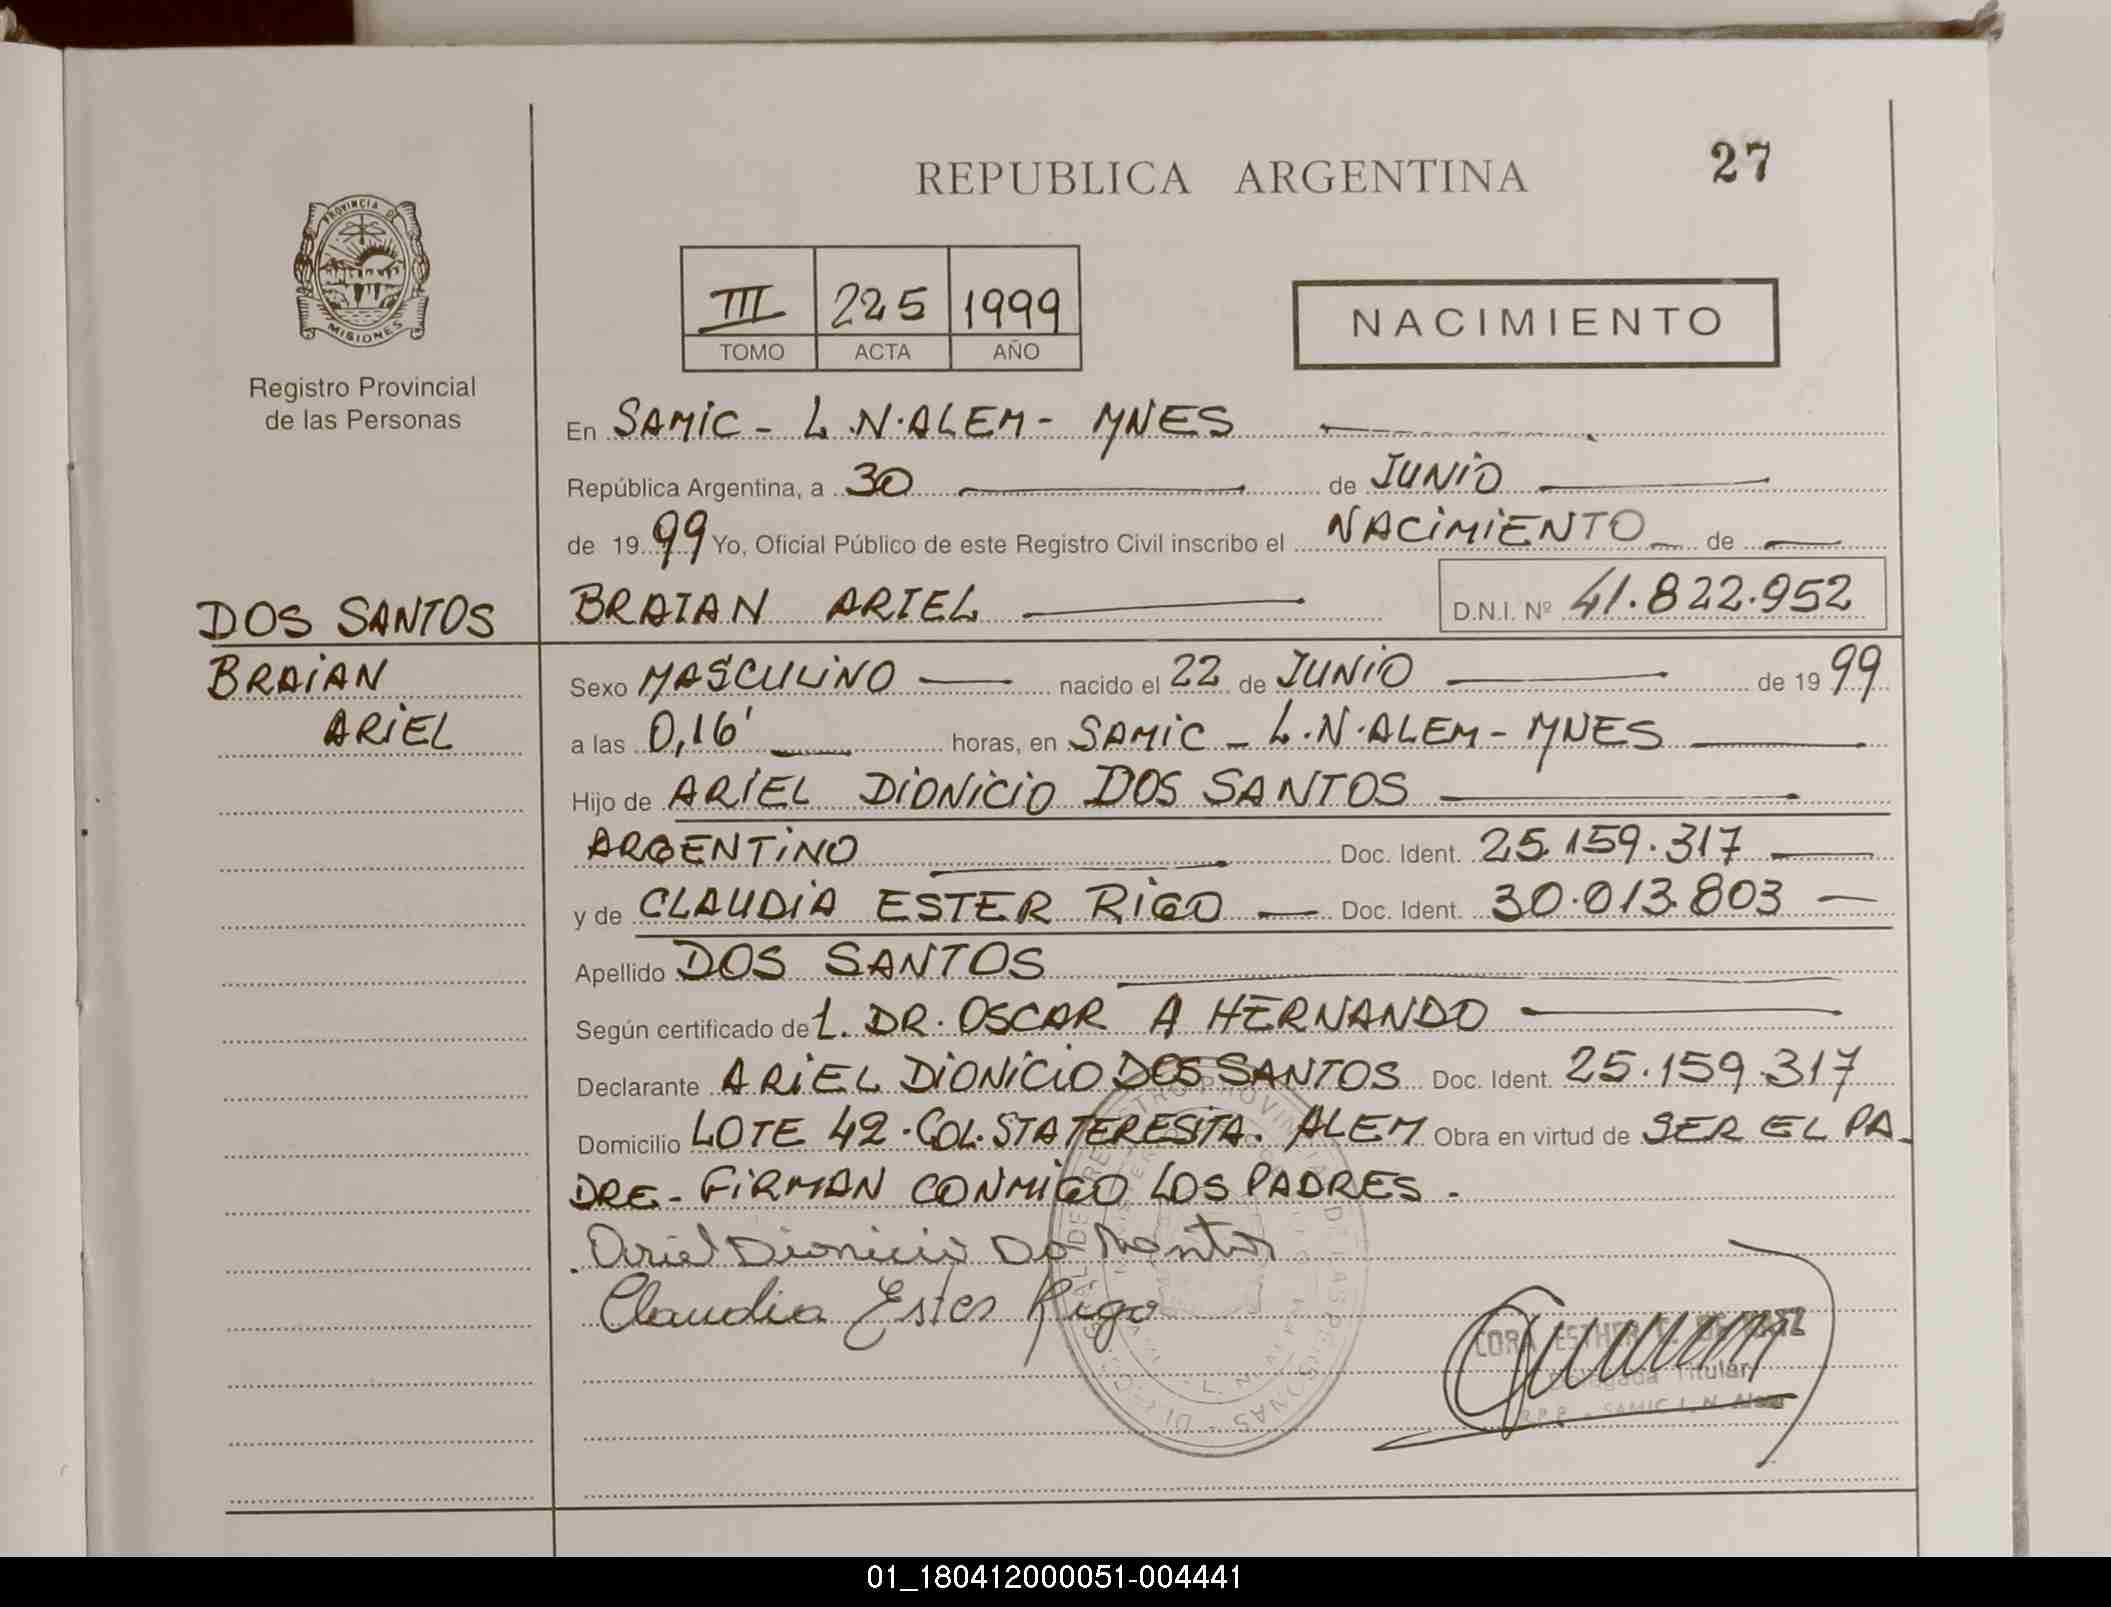 REPUBLICA ARGENTINA
27
PROVINCIA DE
MISIONES
Registro Provincial
de las Personas
III 225 1999
TOMO ACTA AÑO
NACIMIENTO
En SAMIC - L.N.ALEM - MNES
República Argentina, a 30 de JUNIO
de 1999 Yo, Oficial Público de este Registro Civil inscribo el NACIMIENTO de
BRAIAN ARIEL D.N.I. Nº 41.822.952
DOS SANTOS
BRAIAN
ARIEL
Sexo MASCULINO nacido el 22 de JUNIO de 1999
a las 0,16' horas, en SAMIC - L.N.ALEM - MNES
Hijo de ARIEL DIONICIO DOS SANTOS
ARGENTINO Doc. Ident. 25.159.317
y de CLAUDIA ESTER RIGO Doc. Ident. 30.013.803
Apellido DOS SANTOS
Según certificado de 1. DR. OSCAR A HERNANDO
Declarante ARIEL DIONICIO DOS SANTOS Doc. Ident. 25.159.317
Domicilio LOTE 42. COL. STA TERESITA. ALEM Obra en virtud de SER EL PA-
DRE - FIRMAN CONMIGO LOS PADRES.
Ariel Dionicio Do Santos
Claudia Ester Rigo
CORA ESTHER
Delegada Titular
R.P.P. - SAMIC L.N. Alem
01_180412000051-004441